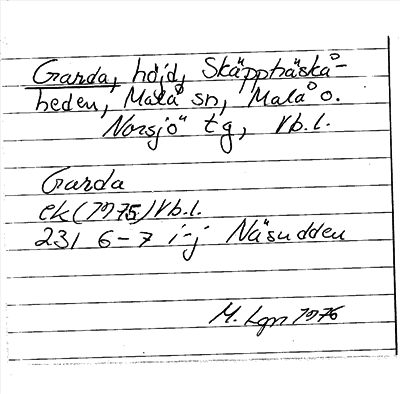 Garda, höjd, Skäppträskå-
heden, Malå sn, Malå o.
Norsjö tg, Vb.l.
Garda
ek (1975) Vb.l.
231 6-7 i-j Näsudden
M. Lgn 1976